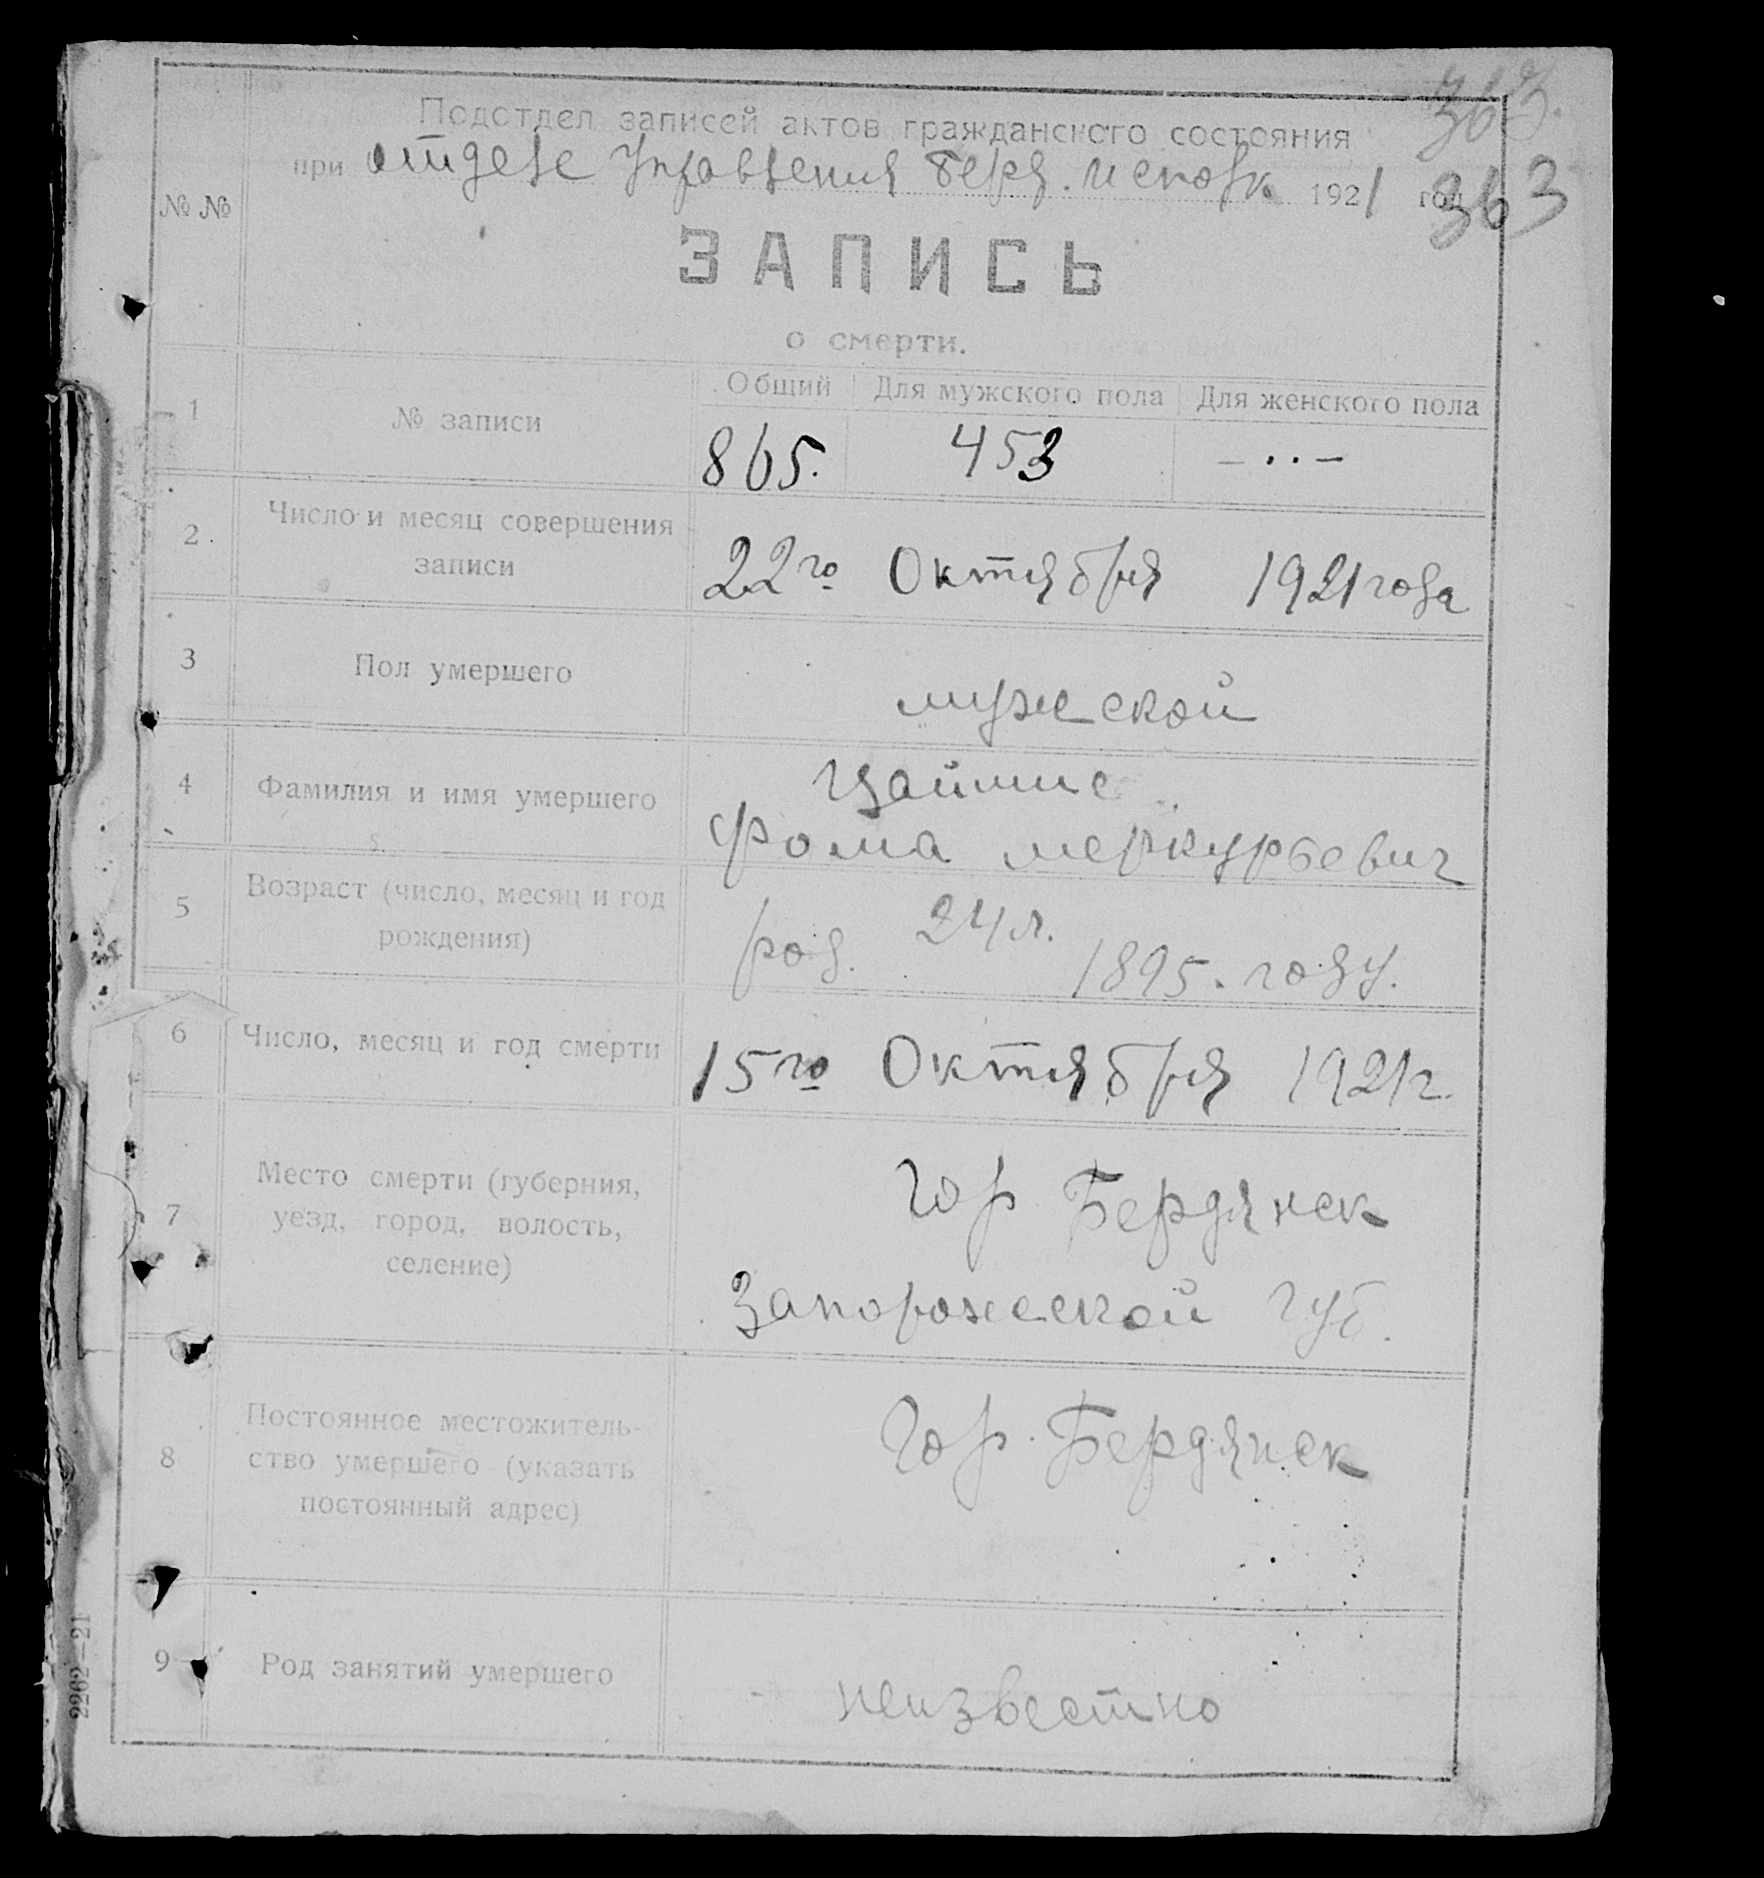 363.
Подотдел записей актов гражданского состояния
при отделе Управления Берд. исполк. 1921 год
363
№ №
ЗАПИСЬ
о смерти.
Общий Для мужского пола Для женского пола
1 № записи 865. 453 - .. -
2 Число и месяц совершения
записи 22го Октября 1921 года
3 Пол умершего мужской
4 Фамилия и имя умершего
Фома меркурьевич
5 Возраст (число, месяц и год
рождения) род. 24 л. 1895. году.
6 Число, месяц и год смерти 15го Октября 1921 г.
7 Место смерти (губерния,
уезд, город, волость,
селение)
гор Бердянск
Запорожской губ.
8 Постоянное местожитель-
ство умершего (указать
постоянный адрес)
гор. Бердянск
9 Род занятий умершего неизвестно
2262—21